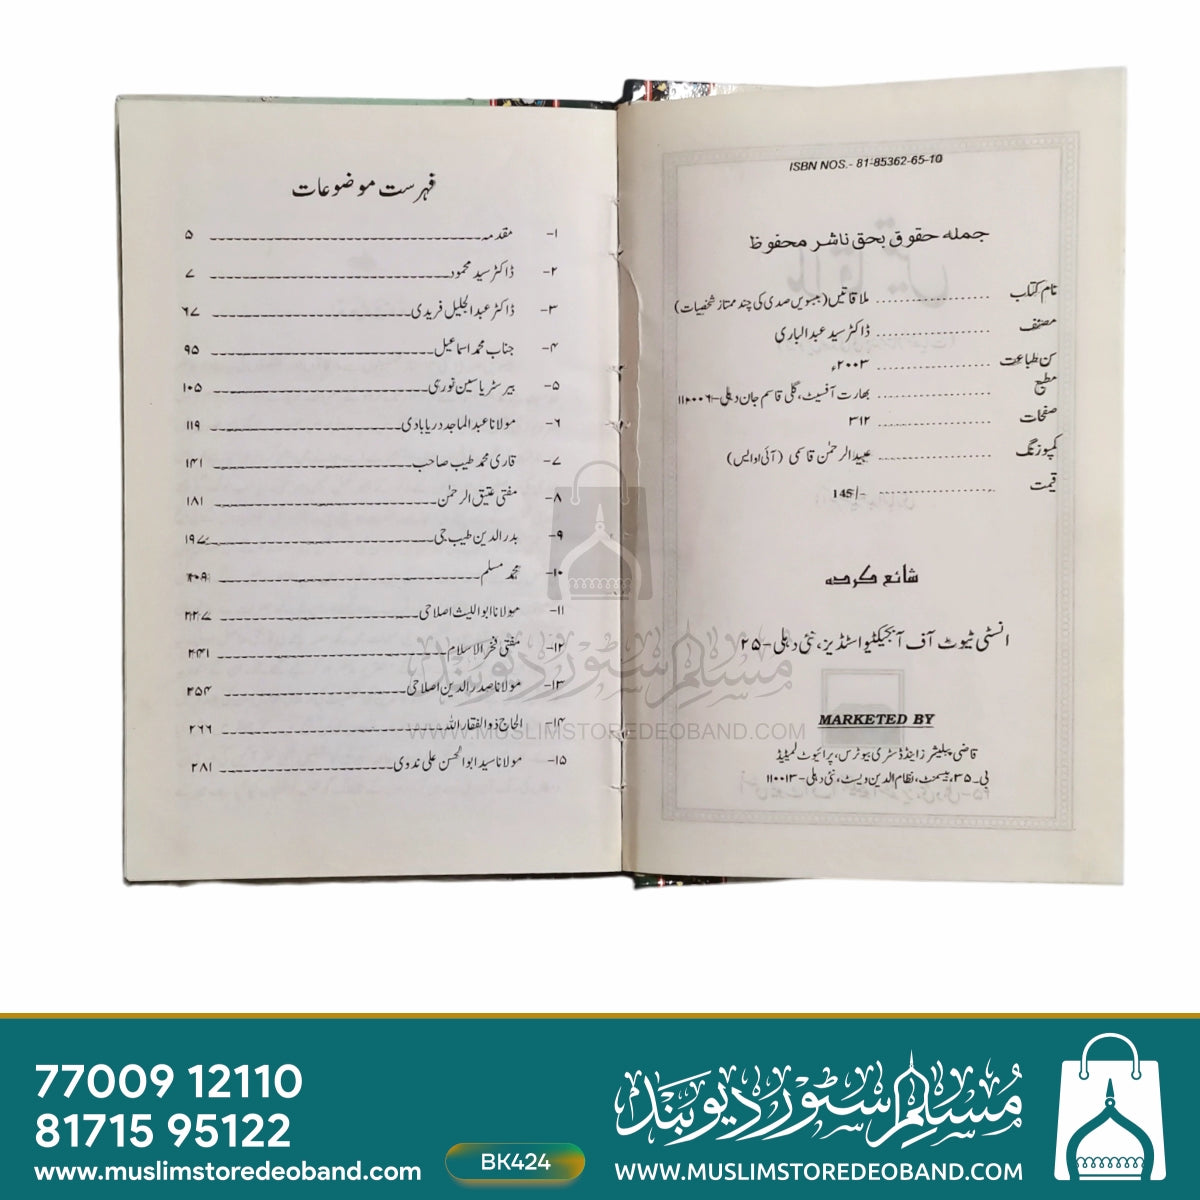 ISBN NOS.- 81-85362-65-10
جملہ حقوق بحق ناشر محفوظ
نام کتاب ............ ملاقاتیں (بیسویں صدی کی چند ممتاز شخصیات)
مصنف ............ ڈاکٹر سید عبدالباری
سن طباعت ............ ۲۰۰۳ء
مطبع ............ بھارت آفسیٹ، گلی قاسم جان دہلی-۱۱۰۰۰۶
صفحات ............ ۳۱۲
کمپوزنگ ............ عبیدالرحمٰن قاسمی (آئی او ایس)
قیمت ............ 145/-
شائع کردہ
انسٹی ٹیوٹ آف آبجیکٹیو اسٹڈیز، نئی دہلی-۲۵
MARKETED BY
قاضی پبلیشرز اینڈ ڈسٹری بیوٹرس، پرائیوٹ لمیٹیڈ
بی-۳۵، بیسمنٹ، نظام الدین ویسٹ، نئی دہلی-۱۱۰۰۱۳
فہرست موضوعات
۱- مقدمہ ۵
۲- ڈاکٹر سید محمود ۷
۳- ڈاکٹر عبدالجلیل فریدی ۶۷
۴- جناب محمد اسماعیل ۹۵
۵- بیرسٹر یاسین نوری ۱۰۵
۶- مولانا عبدالماجد دریابادی ۱۱۹
۷- قاری محمد طیب صاحب ۱۴۱
۸- مفتی عتیق الرحمٰن ۱۸۱
۹- بدرالدین طیب جی ۱۹۷
۱۰- محمد مسلم ۲۰۹
۱۱- مولانا ابواللیث اصلاحی ۲۲۷
۱۲- مفتی فخرالاسلام ۲۴۱
۱۳- مولانا صدرالدین اصلاحی ۲۵۴
۱۴- الحاج ذوالفقار اللہ ۲۶۶
۱۵- مولانا سید ابوالحسن علی ندوی ۲۸۱
مسلم سٹور دیوبند
WWW.MUSLIMSTOREDEOBAND.COM
77009 12110
81715 95122
www.muslimstoredeoband.com
BK424
مسلم سٹور دیوبند
WWW.MUSLIMSTOREDEOBAND.COM